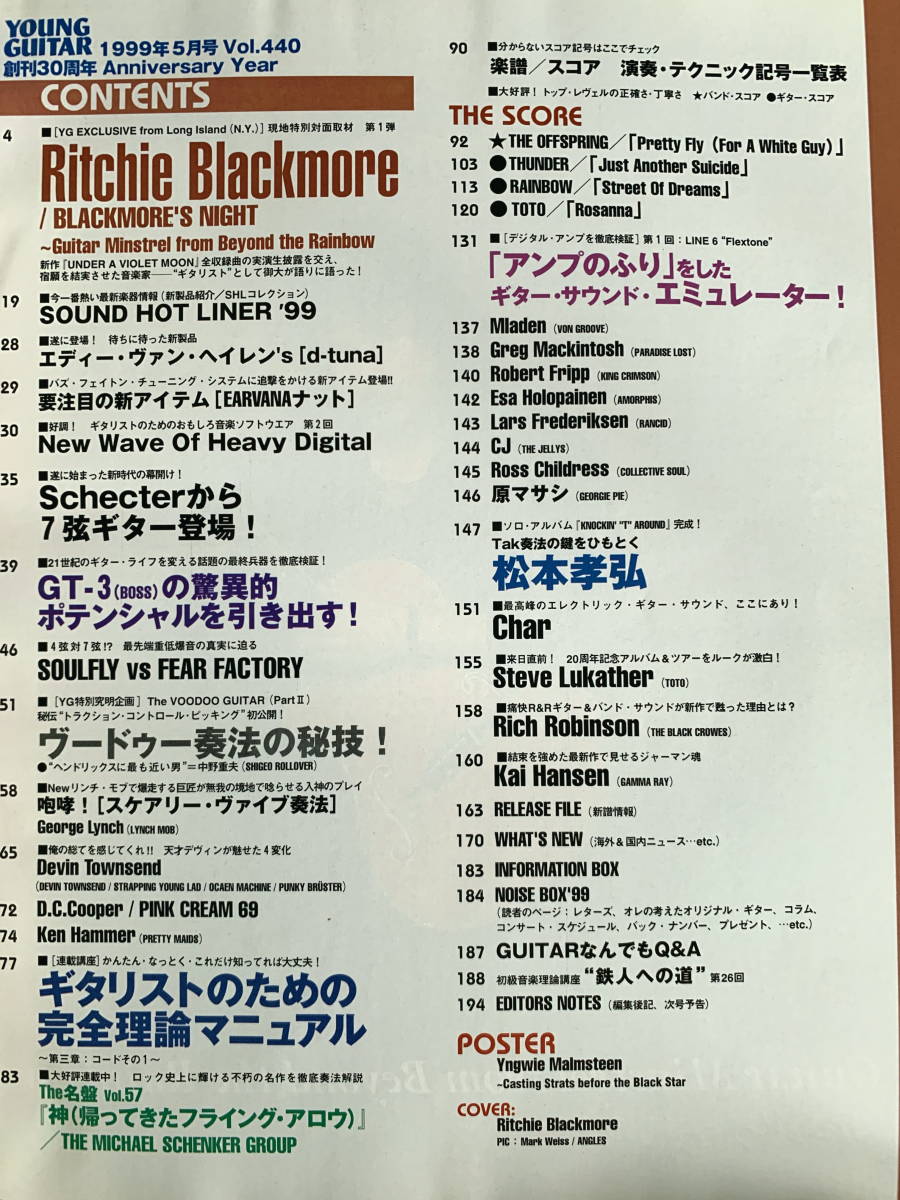 YOUNG
GUITAR 1999年5月号 Vol.440
創刊30周年 Anniversary Year
CONTENTS
4 ■[YG EXCLUSIVE from Long Island (N.Y.)] 現地特別対面取材 第1弾
Ritchie Blackmore
/ BLACKMORE'S NIGHT
~Guitar Minstrel from Beyond the Rainbow
新作『UNDER A VIOLET MOON』全収録曲の実演生披露を交え、
宿願を結実させた音楽家——“ギタリスト”として御大が語りに語った!
19 ■今一番熱い最新楽器情報(新製品紹介/SHLコレクション)
SOUND HOT LINER '99
28 ■遂に登場! 待ちに待った新製品
エディー・ヴァン・ヘイレン's [d-tuna]
29 ■バズ・フェイトン・チューニング・システムに追撃をかける新アイテム登場!!
要注目の新アイテム[EARVANAナット]
30 ■好調! ギタリストのためのおもしろ音楽ソフトウエア 第2回
New Wave Of Heavy Digital
35 ■遂に始まった新時代の幕開け!
Schecterから
7弦ギター登場!
39 ■21世紀のギター・ライフを変える話題の最終兵器を徹底検証!
GT-3(BOSS)の驚異的
ポテンシャルを引き出す!
46 ■4弦対7弦!? 最先端重低爆音の真実に迫る
SOULFLY vs FEAR FACTORY
51 ■[YG特別究明企画] The VOODOO GUITAR (Part II)
秘伝“トラクション・コントロール・ピッキング”初公開!
ヴードゥー奏法の秘技!
●“ヘンドリックスに最も近い男”=中野重夫(SHIGEO ROLLOVER)
58 ■Newリンチ・モブで爆走する巨匠が無我の境地で唸らせる入神のプレイ
咆哮![スケアリー・ヴァイブ奏法]
George Lynch (LYNCH MOB)
65 ■俺の総てを感じてくれ!! 天才デヴィンが魅せた4変化
Devin Townsend
(DEVIN TOWNSEND / STRAPPING YOUNG LAD / OCAEN MACHINE / PUNKY BRÜSTER)
72 D.C.Cooper / PINK CREAM 69
74 Ken Hammer (PRETTY MAIDS)
77 ■[連載講座]かんたん・なっとく・これだけ知ってれば大丈夫!
ギタリストのための
完全理論マニュアル
~第三章:コードその1~
83 ■大好評連載中! ロック史上に輝ける不朽の名作を徹底奏法解説
The名盤 Vol.57
『神(帰ってきたフライング・アロウ)』
/THE MICHAEL SCHENKER GROUP
90 ■分からないスコア記号はここでチェック
楽譜/スコア 演奏・テクニック記号一覧表
■大好評! トップ・レヴェルの正確さ・丁寧さ ★バンド・スコア ●ギター・スコア
THE SCORE
92 ★THE OFFSPRING/「Pretty Fly (For A White Guy)」
103 ●THUNDER/「Just Another Suicide」
113 ●RAINBOW/「Street Of Dreams」
120 ●TOTO/「Rosanna」
131 ■[デジタル・アンプを徹底検証] 第1回:LINE 6 “Flextone”
「アンプのふり」をした
ギター・サウンド・エミュレーター!
137 Mladen (VON GROOVE)
138 Greg Mackintosh (PARADISE LOST)
140 Robert Fripp (KING CRIMSON)
142 Esa Holopainen (AMORPHIS)
143 Lars Frederiksen (RANCID)
144 CJ (THE JELLYS)
145 Ross Childress (COLLECTIVE SOUL)
146 原マサシ (GEORGIE PIE)
147 ■ソロ・アルバム『KNOCKIN' "T" AROUND』完成!
Tak奏法の鍵をひもとく
松本孝弘
151 ■最高峰のエレクトリック・ギター・サウンド、ここにあり!
Char
155 ■来日直前! 20周年記念アルバム&ツアーをルークが激白!
Steve Lukather (TOTO)
158 ■痛快R&Rギター&バンド・サウンドが新作で甦った理由とは?
Rich Robinson (THE BLACK CROWES)
160 ■結束を強めた最新作で見せるジャーマン魂
Kai Hansen (GAMMA RAY)
163 RELEASE FILE (新譜情報)
170 WHAT'S NEW (海外&国内ニュース…etc.)
183 INFORMATION BOX
184 NOISE BOX'99
(読者のページ:レターズ、オレの考えたオリジナル・ギター、コラム、
コンサート・スケジュール、バック・ナンバー、プレゼント、…etc.)
187 GUITARなんでもQ&A
188 初級音楽理論講座 “鉄人への道” 第26回
194 EDITORS NOTES (編集後記、次号予告)
POSTER
Yngwie Malmsteen
~Casting Strats before the Black Star
COVER:
Ritchie Blackmore
PIC : Mark Weiss / ANGLES